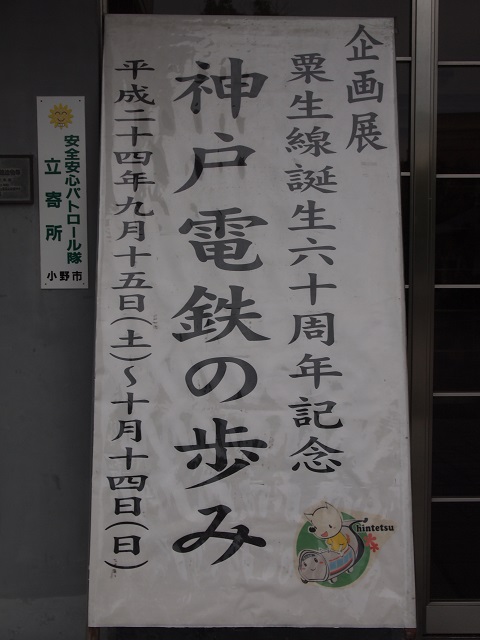 企画展
粟生線誕生六十周年記念
神戸電鉄の歩み
平成二十四年九月十五日(土)～十月十四日(日)
Shintetsu
安全安心パトロール隊
立寄所
小野市